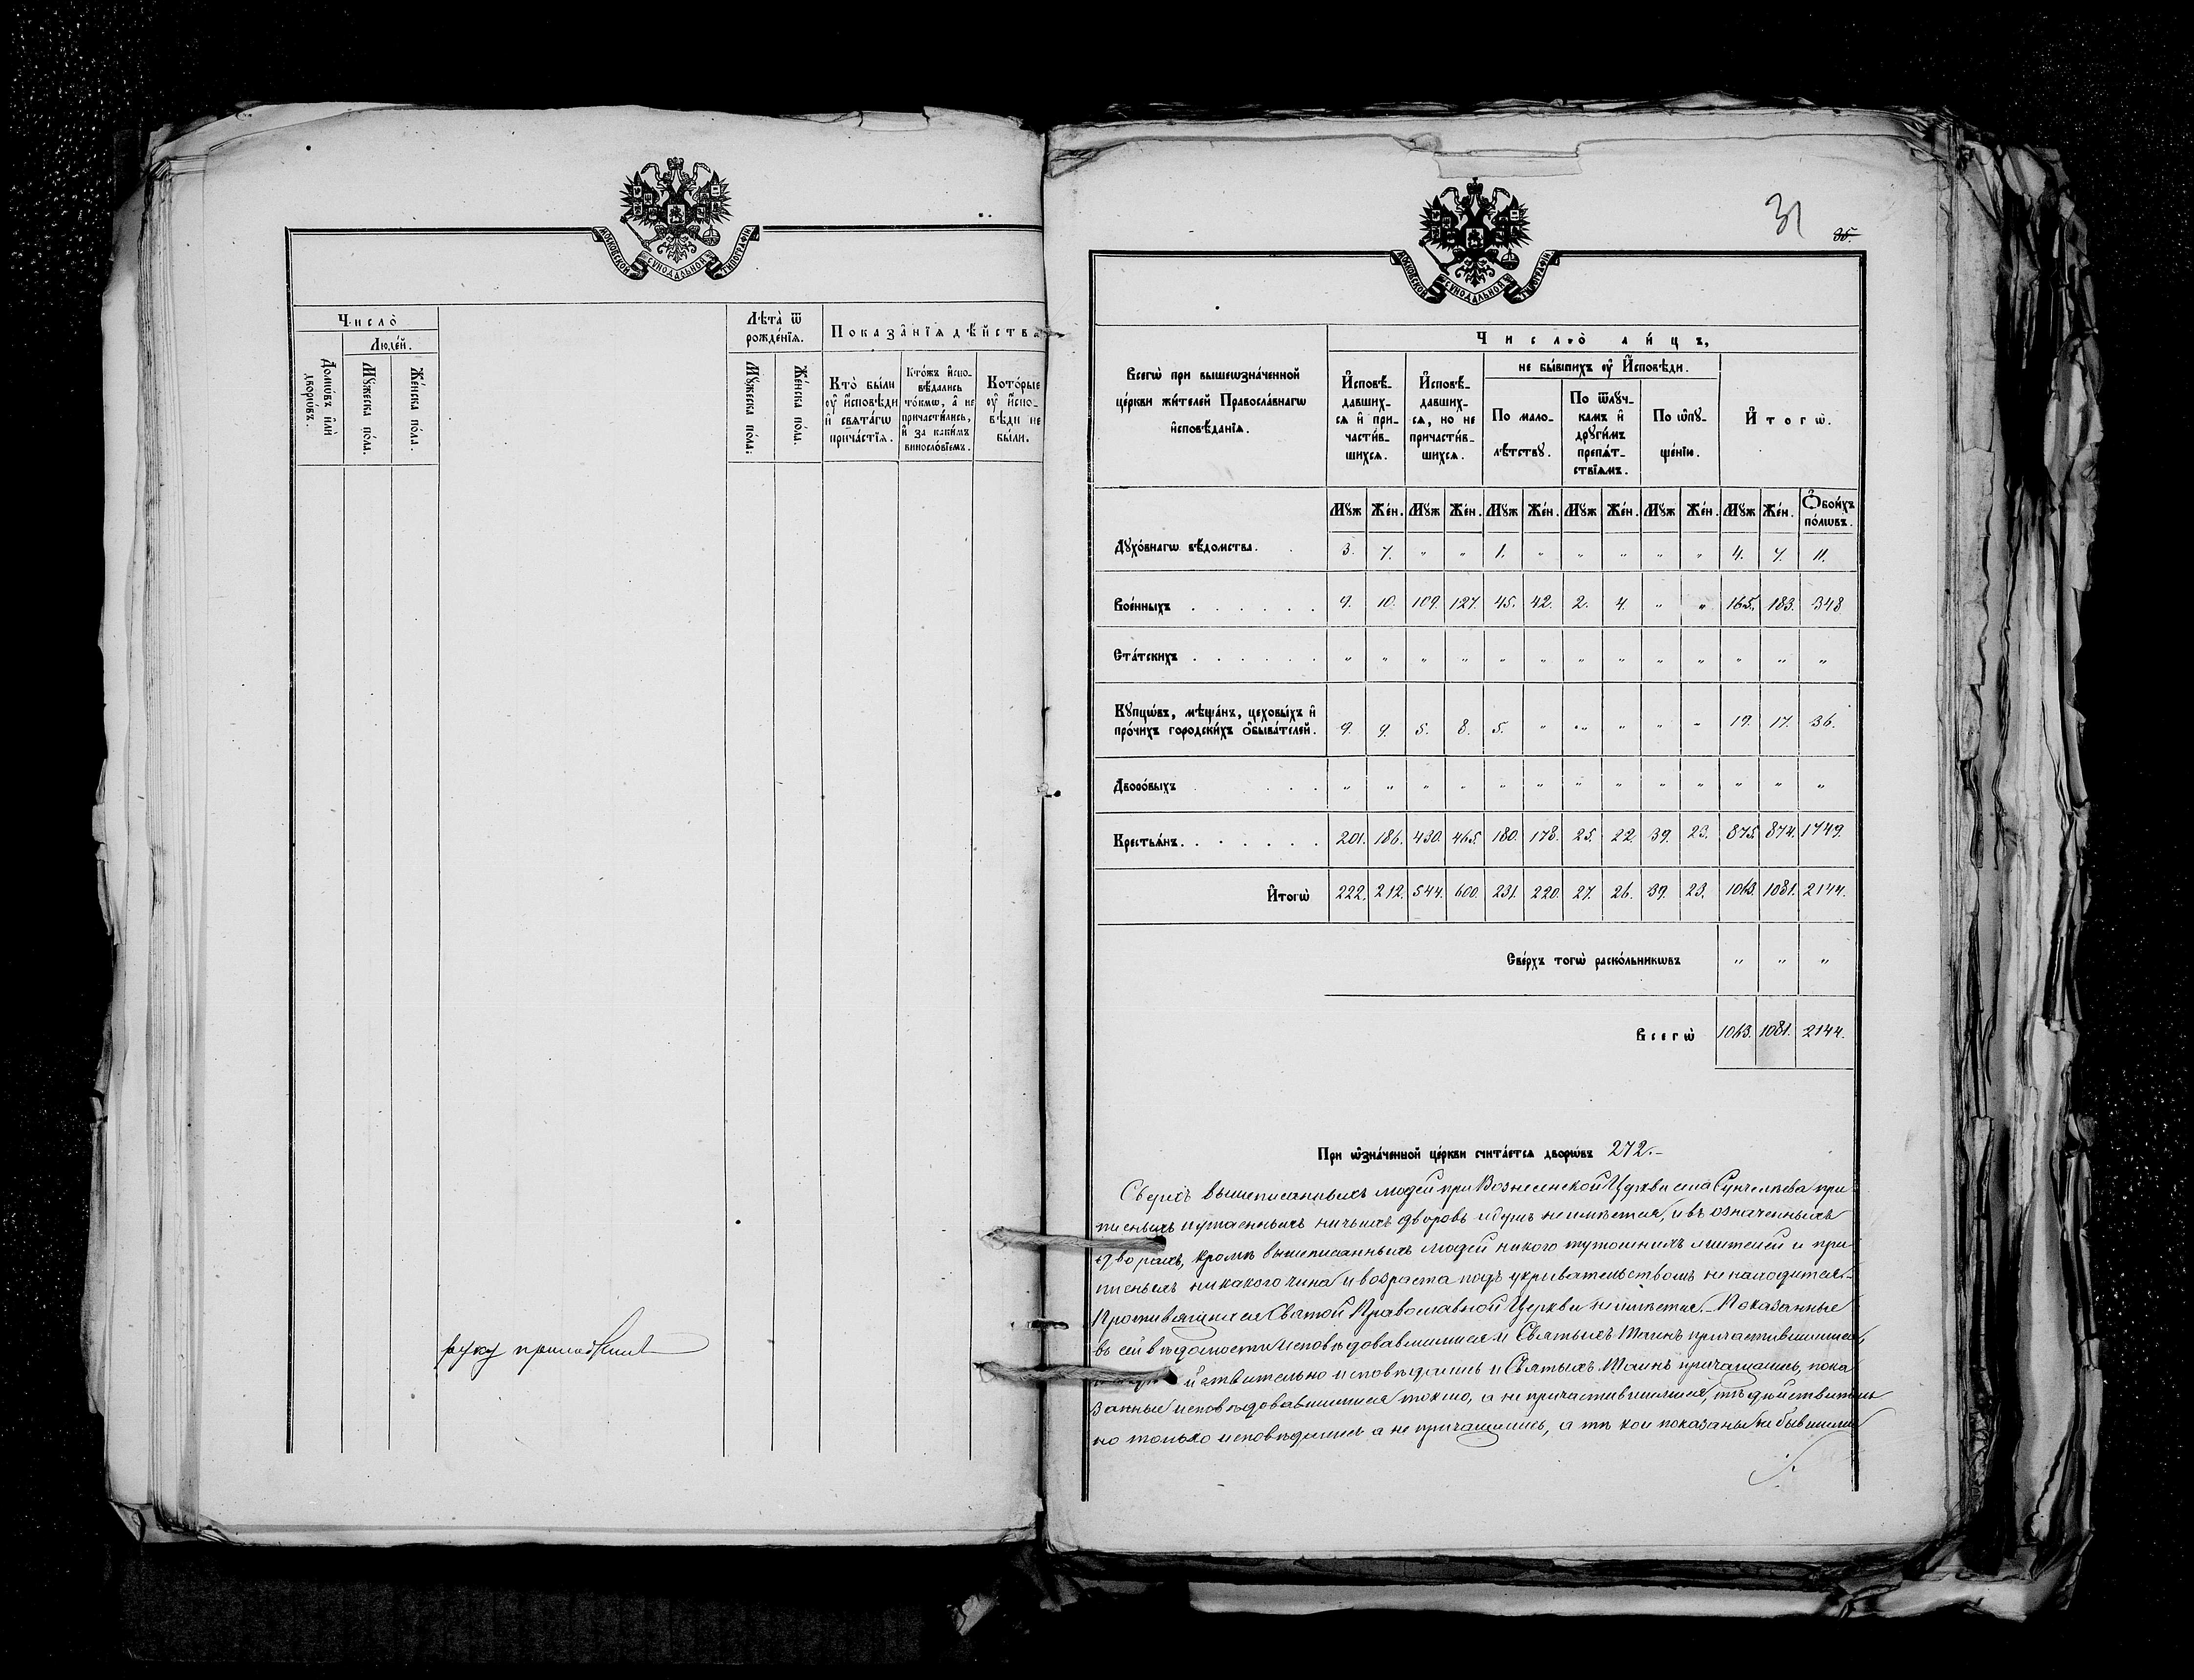 МОСКОВСКОЙ СѴНОДАЛЬНОЙ ТИПОГРАФІИ
Число̀
Люде́й.
Домѡ́въ и҆лѝ дворѡ́въ.
Мꙋ́жеска по́ла.
Же́нска по́ла.
Лѣта̀ ѿ рожде́нїѧ.
Мꙋ́жеска по́ла.
Же́нска по́ла.
Показа̑нїѧ дѣ́йства
Кто̀ бы́ли
ᲂу҆ и҆́сповѣди
и҆ свѧта́гѡ
прича́стїѧ.
Кто́жъ и҆спо-
вѣ́дались
то́кмѡ, а҆ не
причасти́лись,
и҆ за каки́мъ
виносло́вїемъ.
Кото́рые
ᲂу҆ и҆́спо-
вѣди не
бы́ли.
руку приложилъ
МОСКОВСКОЙ СѴНОДАЛЬНОЙ ТИПОГРАФІИ
31
35.
Всегѡ̀ при вышеѡзна́ченной
це́ркви жи́телей Правосла́внагѡ
и҆сповѣ́данїѧ.
Число̀ ли́цъ,
И҆сповѣ́-
давших-
сѧ и҆ при-
части́в-
шихсѧ.
И҆сповѣ́-
давших-
сѧ, но не
причасти́в-
шихсѧ.
не бы́вшихъ ᲂу҆ И҆́сповѣди.
По мало-
лѣ́тствꙋ.
По ѿлꙋч-
камъ и҆
дрꙋги́мъ
препѧ́т-
ствїѧмъ.
По ѡ҆пꙋ-
ще́нїю.
И҆того̀.
Мꙋж Же́н. Мꙋж Же́н. Мꙋж Же́н. Мꙋж Же́н. Мꙋж Же́н. Мꙋж Же́н. Ѻ҆бои́хъ по́лѡвъ.
Дꙋхо́внагѡ вѣ́домства. 3. 7. " " 1. " " " " " 4. 7. 11.
Вое́нныхъ . . . . . . 9. 10. 109. 127. 45. 42. 2. 4. " " 165. 183. 348
Ста́тскихъ . . . . . . " " " " " " " " " " " " "
Кꙋпцѡ́въ, мѣща́нъ, цеховы́хъ и҆
про́чихъ городски́хъ ѻ҆быва́телей. 9. 9. 5. 8. 5. " " " " " 19. 17. 36.
Дворо́выхъ . . . . " " " " " " " " " " " " "
Крестьѧ́нъ. . . . . . . 201. 186. 430. 465. 180. 178. 25. 22. 39. 23. 875. 874. 1749.
И҆тогѡ̀ 222. 212. 544. 600. 231. 220. 27. 26. 39. 23. 1063. 1081. 2144.
Све́рхъ тогѡ̀ раско́льникѡвъ " " "
Всегѡ̀ 1063. 1081. 2144.
При ѡ҆зна́ченной це́ркви счита́етсѧ дворѡ́въ 272.–
Сверхъ вышеписанныхъ людей при Вознесенской Церкви села при
шлыхъ и утаенныхъ ничьихъ дворовъ и душъ не имѣется, и въ означенныхъ
дворахъ, кромѣ вышеписанныхъ людей никого тутошнихъ жителей и при
шлыхъ никакого чина и возраста подъ укривательствомъ не находится.–
Противящихся Святой Православной Церкви не имѣется.– Показанные
въ сей вѣдомости исповѣдовавшимися и Святыхъ Таинъ причастившимися,
йствительно исповѣдались и Святыхъ Таинъ причащались, пока
занные исповѣдовавшимися токмо, а не причастившимися, тѣ дѣйствитель
но только исповѣдались а не причащались, а тѣ кои показаны не бывшими